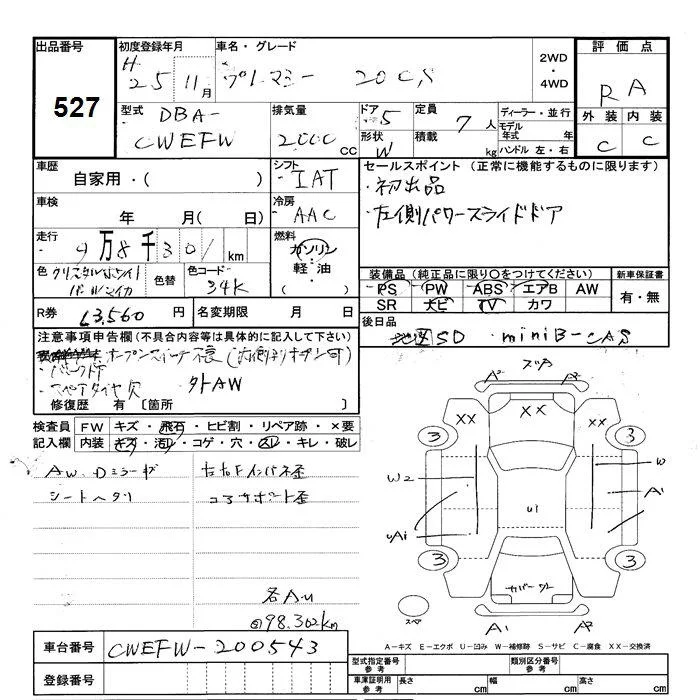 出品番号 初度登録年月 車名・グレード 2WD・4WD 評価点
527 H25 11月 プレマシー 20CS RA
型式 DBA-CWEFW 排気量 2000cc ドア 5 定員 7人 ディーラー・並行
形状 W 積載 kg モデル年式 年 ハンドル 左・右
外装 内装
C C
車歴 自家用・( ) シフト IAT セールスポイント (正常に機能するものに限ります)
・初出品
・左側パワースライドドア
車検 年 月( 日) 冷房 AAC
走行 9万8千301km 燃料 ガソリン・軽油・
色 クリスタルホワイトパールマイカ 色替 色コード 34K
装備品 (純正品に限り〇をつけてください) 新車保証書
PS PW ABS エアB AW 有・無
SR ナビ TV カワ
R券 13,560円 名変期限 月 日
後日品 地図SD ・miniB-CAS
注意事項申告欄 (不具合内容等は具体的に記入して下さい)
・スペアタイヤ欠 外AW
修復歴 有 [箇所 ]
検査員記入欄 FW キズ・飛石・ヒビ割・リペア跡・×要
内装 キズ・汚レ・コゲ・穴・スレ・キレ・破レ
AW、Dミラーキズ
シートヘタリ
右右Fインパネ歪
コアサポート歪
各A・U
98,302km
A² A²
XX XX XX
3 3
W2 W
A¹
U1
3 3
カバーW2
スペア
A1 A2
車台番号 CWEFW-200543
登録番号
A-キズ E-エクボ U-凹み W-補修跡 S-サビ C-腐食 XX-交換済
型式指定番号 参考 類別区分番号 参考
車庫証明用 参考 長さ cm 幅 cm 高さ cm